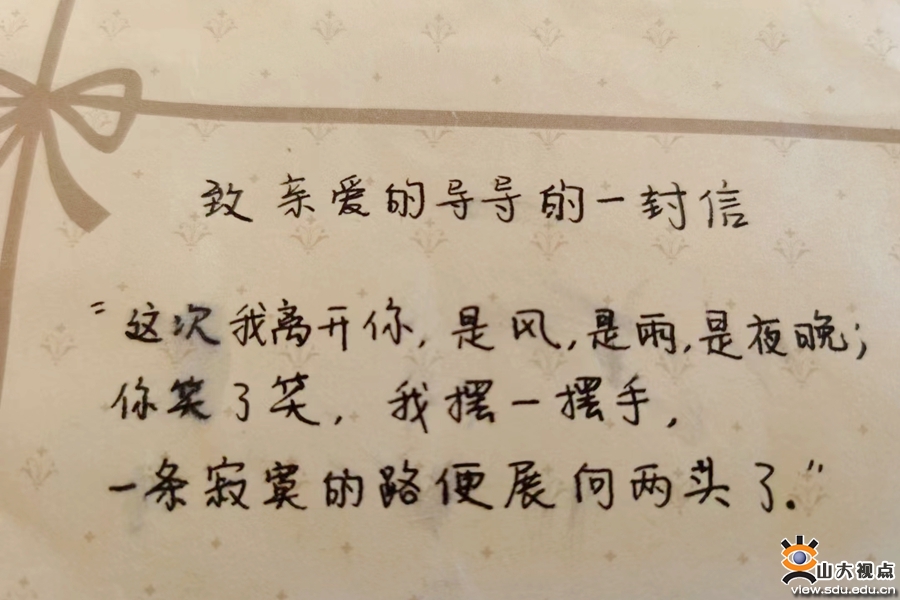 致亲爱的导导的一封信
“这次我离开你,是风,是雨,是夜晚;
你笑了笑,我摆一摆手,
一条寂寞的路便展向两头了.”
山大视点
view.sdu.edu.cn